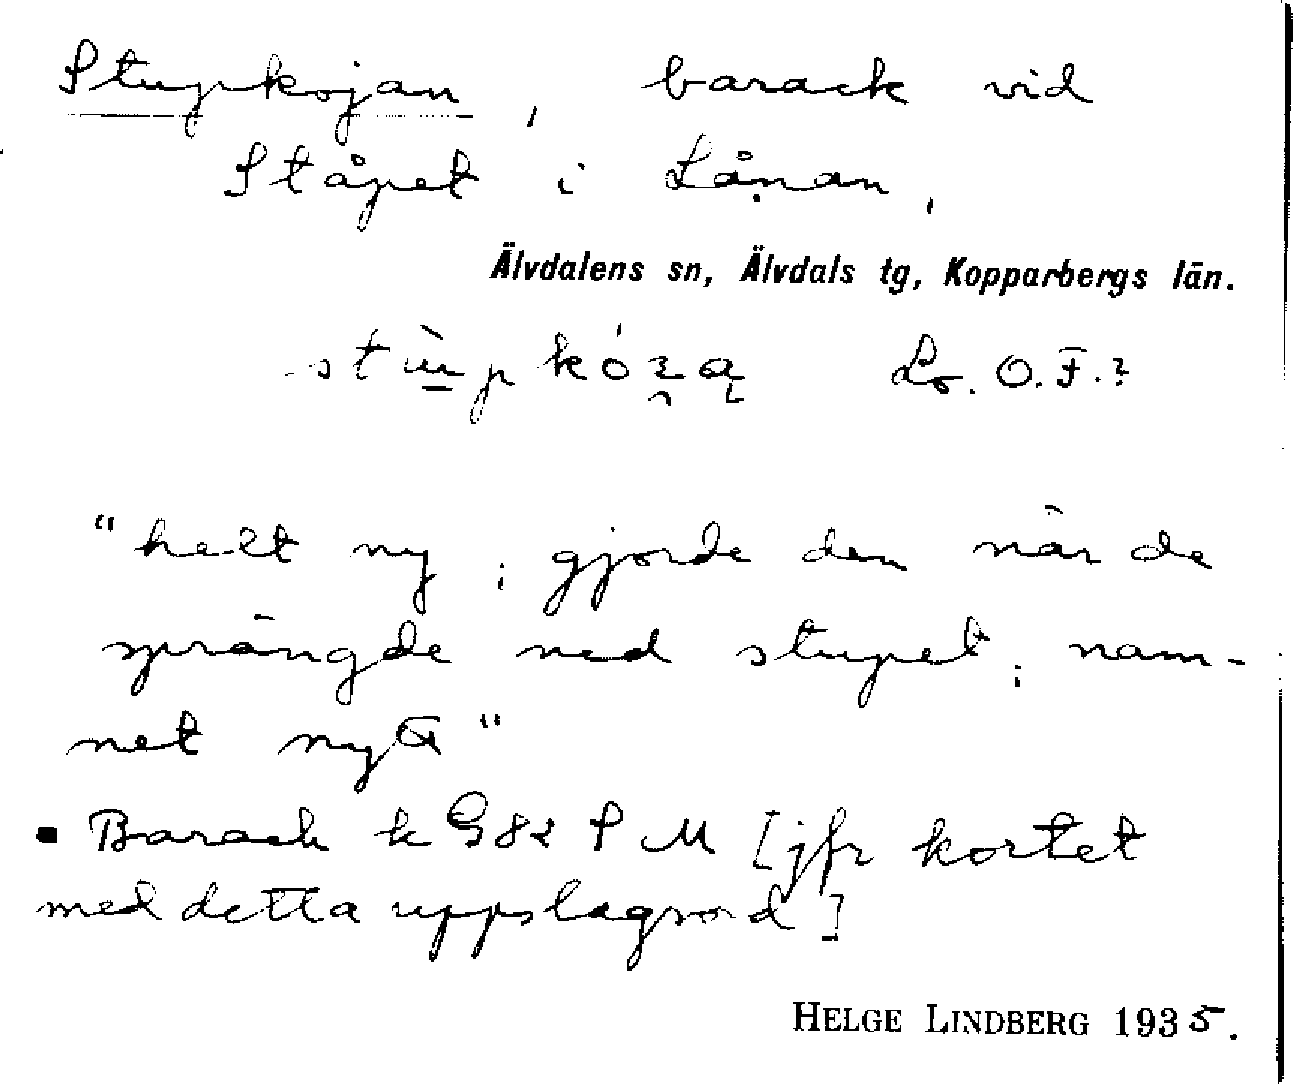 Stupkojan, barack vid
Ståpet i Lånan,
Älvdalens sn, Älvdals tg, Kopparbergs län.
Lo. O.F.?
"helt ny; gjorde den när de
sprängde ned stupet; nam-
net nytt"
▪ Barack k G82 S M [jfr kortet
med detta uppslagsord]
HELGE LINDBERG 1935.